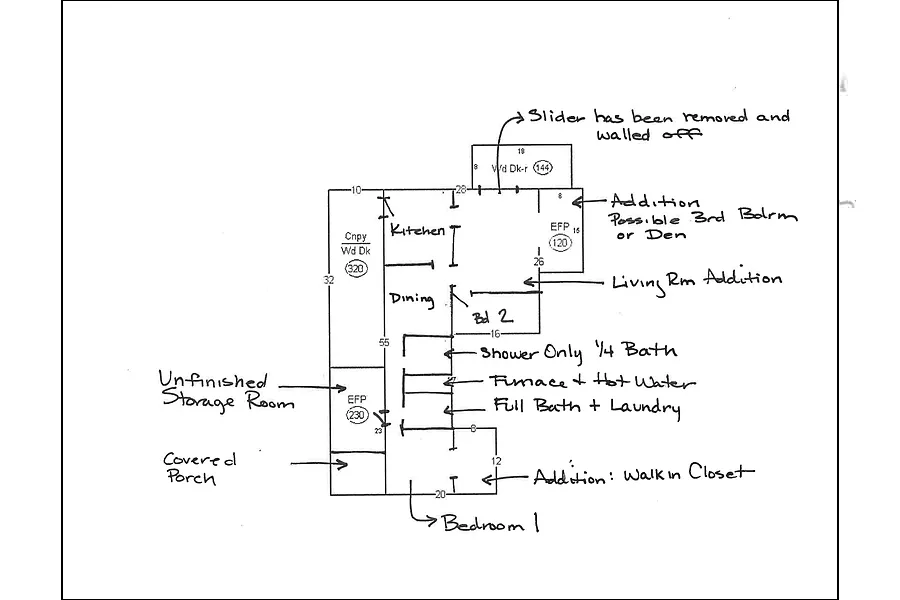 Slider has been removed and
walled off
19
9
Wd Dk-r 144
10
28
8
Addition
Possible 3rd Bdrm
or Den
Kitchen
EFP 15
120
Cnpy
Wd Dk
320
26
32
Living Rm Addition
Dining
Bd 2
16
55
Shower Only 1/4 Bath
Unfinished
Storage Room
Furnace + Hot Water
EFP
230
Full Bath + Laundry
23
8
Covered
Porch
12
Addition: Walk in Closet
20
Bedroom 1